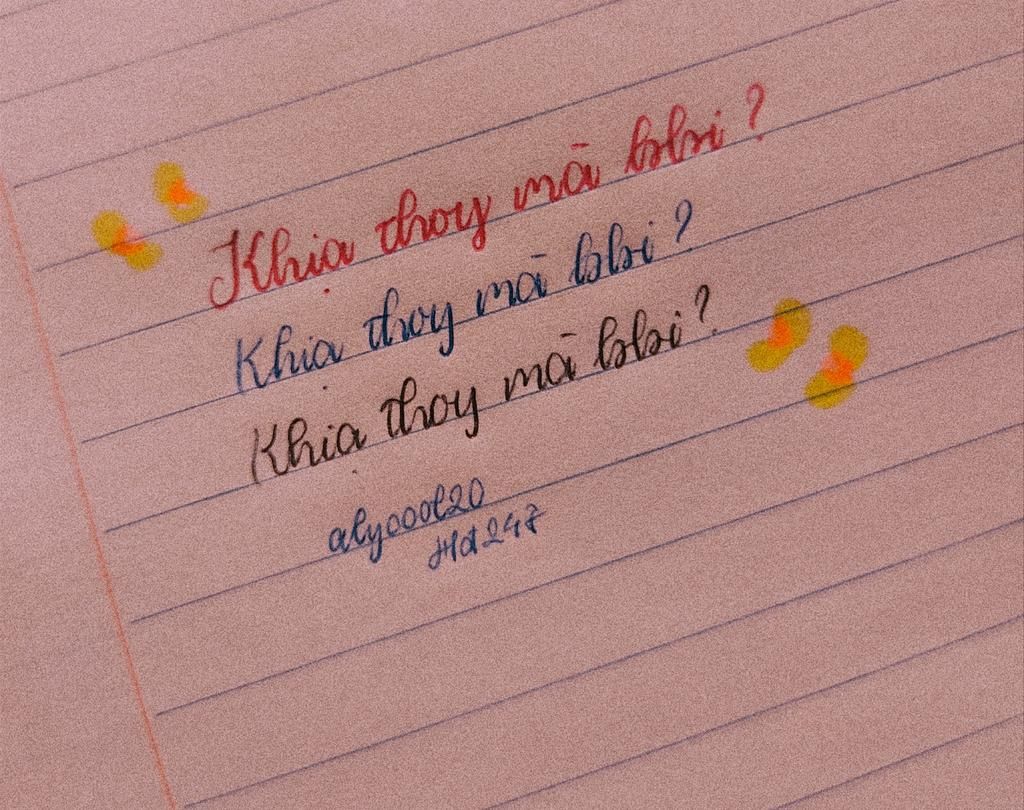 Khịa thoy mà bbi ?
Khịa thoy mà bbi ?
Khịa thoy mà bbi ?
alyooot20
Hd247